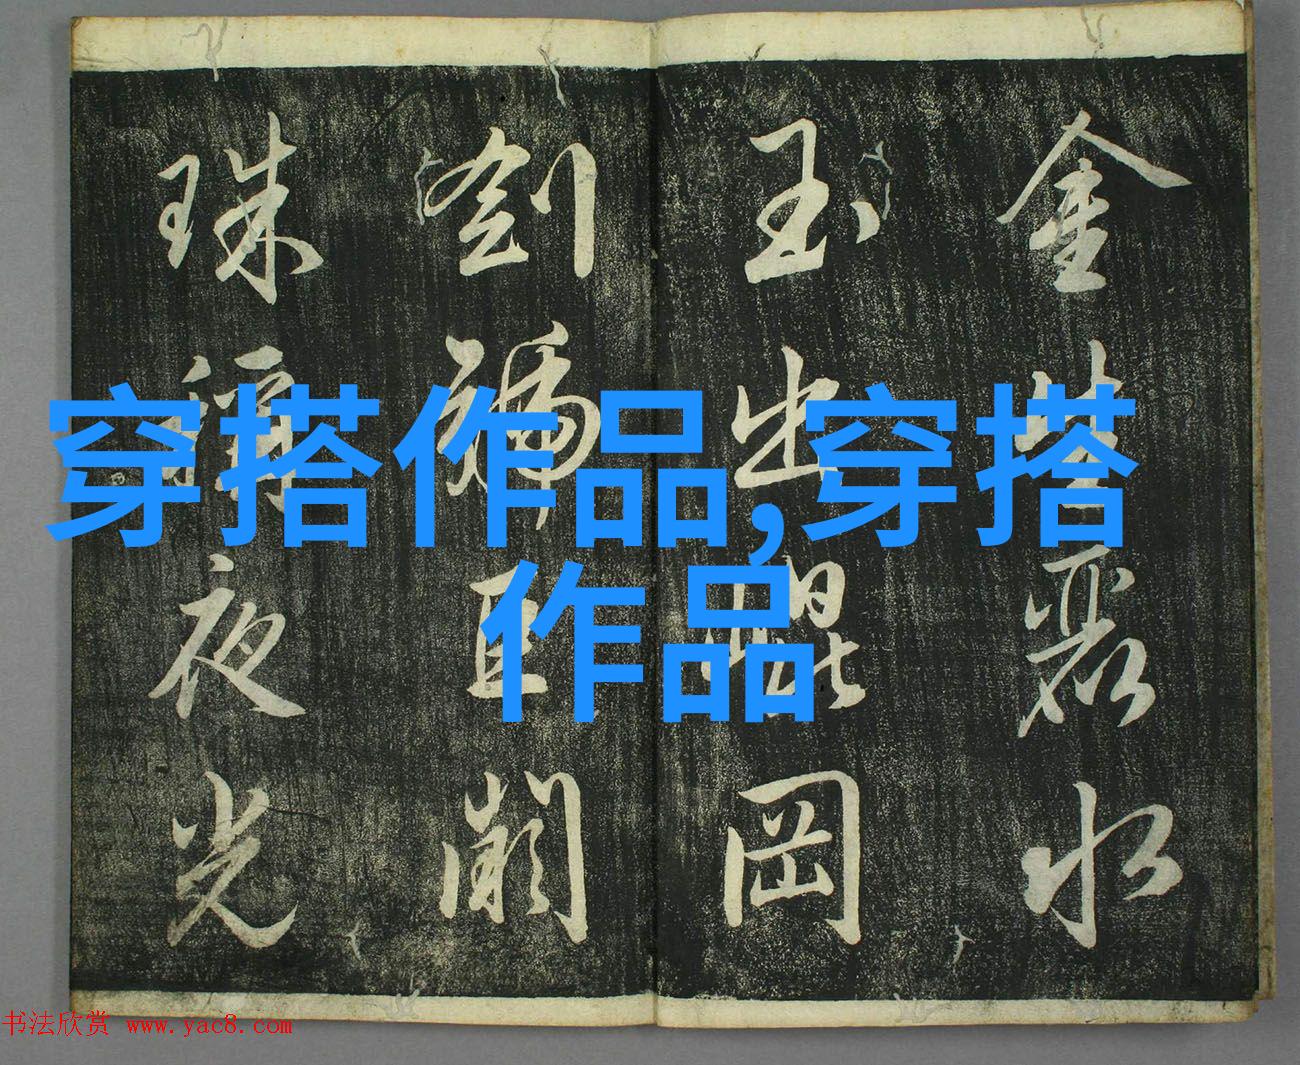 穿搭作品,穿搭
作品
金生麗水
玉出崐岡
劍號巨闕
珠稱夜光
书法欣赏 www.yac8.com